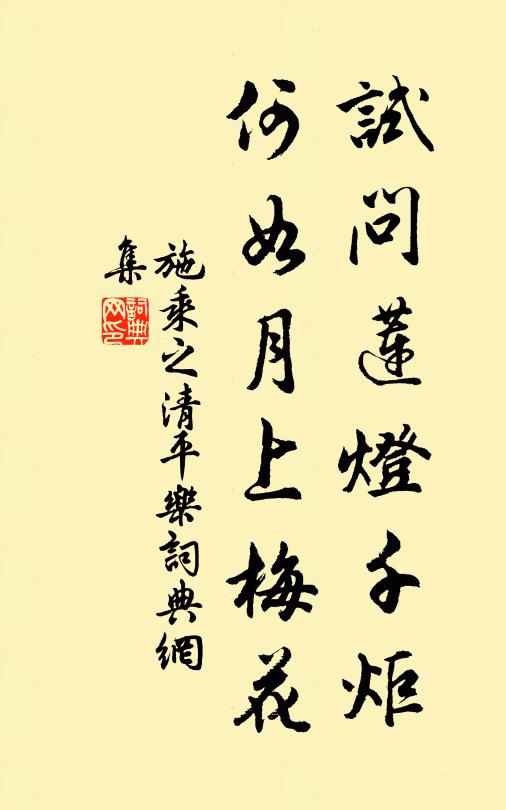 試問蓮燈千炬
何如月上梅花
施乘之清平樂詞典網
集
詞典網印